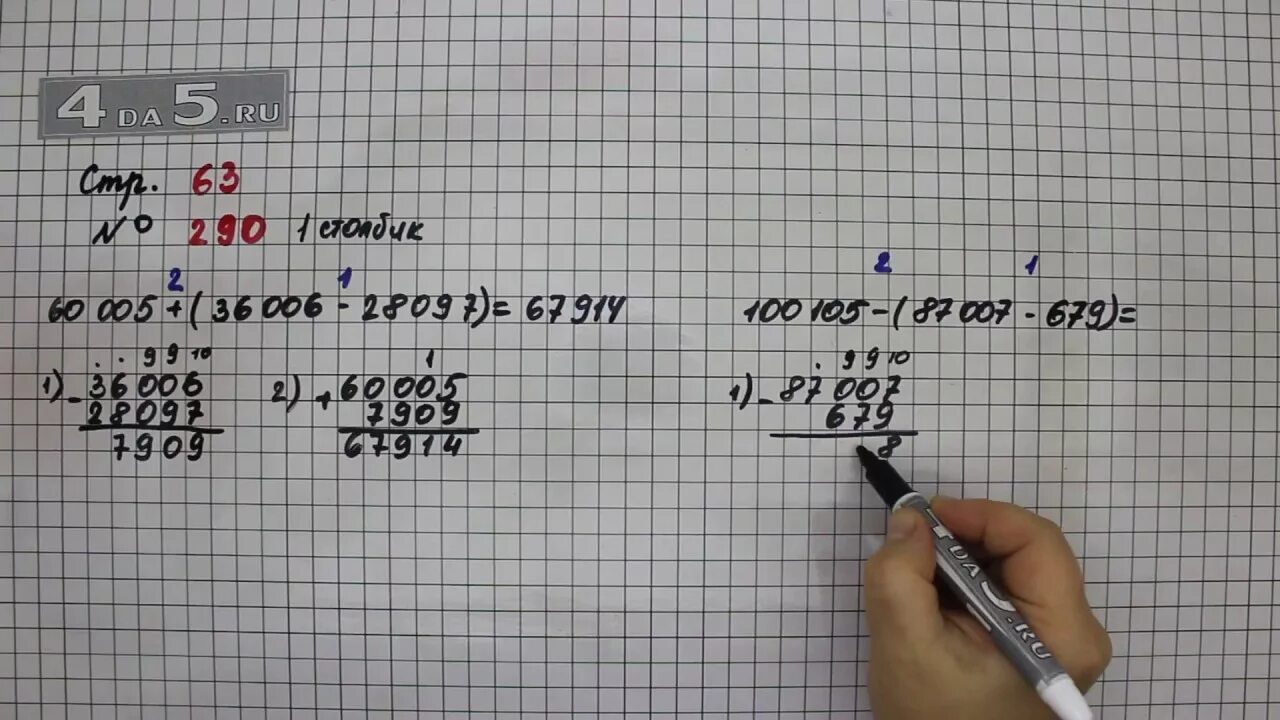 4DA5.RU
Стр. 63
№ 290 1 столбик
2 1
60 005 + (36 006 - 28 097) = 67 914
2 1
100 105 - (87 007 - 679) =
. . 9 9 10
1) - 36 006
28 097
7 909
1
2) + 60 005
7 909
67 914
. 9 9 10
1) - 87 007
679
8
4DA5.RU